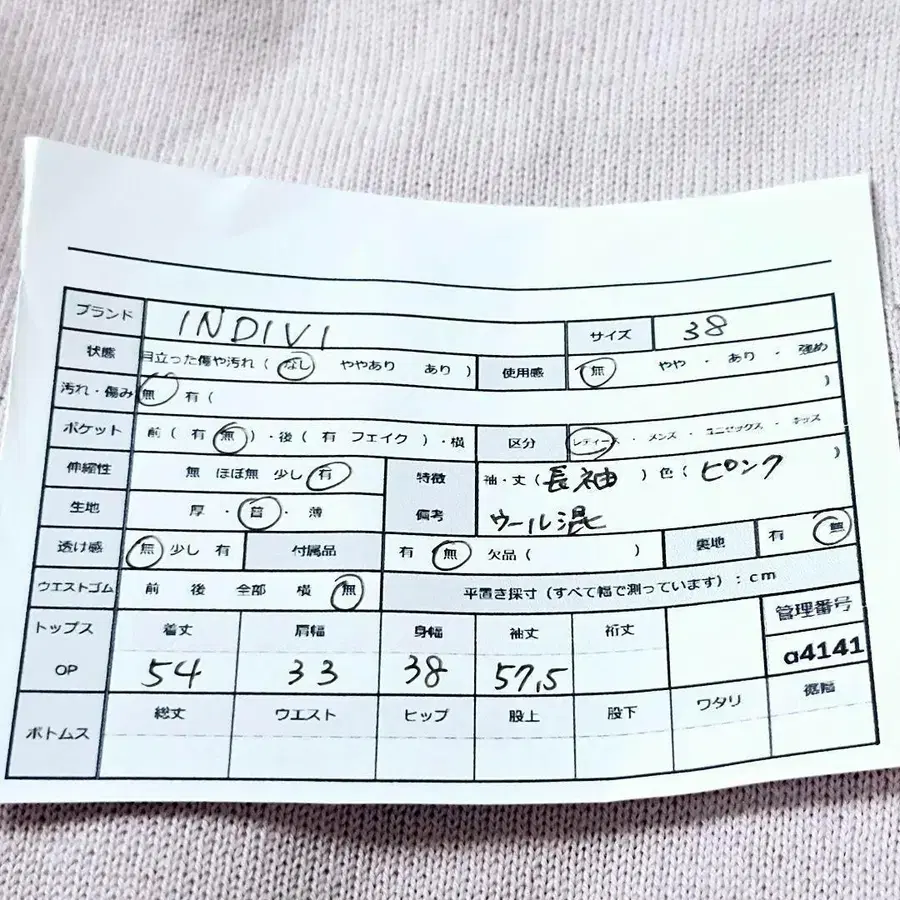 ブランド INDIVI サイズ 38
状態 目立った傷や汚れ ( なし ややあり あり ) 使用感 無 やや ・ あり ・ 強め
汚れ・傷み 無 有 ( )
ポケット 前 ( 有 無 ) ・後 ( 有 フェイク ) ・横 区分 レディース ・ メンズ ・ ユニセックス ・ キッズ
伸縮性 無 ほぼ無 少し 有 特徴 袖・丈 ( 長袖 ) 色 ( ピンク )
生地 厚 ・ 普 ・ 薄 備考 ウール混
透け感 無 少し 有 付属品 有 無 欠品 ( ) 裏地 有 無
ウエストゴム 前 後 全部 横 無 平置き採寸 (すべて幅で測っています) : cm
トップス 着丈 肩幅 身幅 袖丈 裄丈 管理番号
OP 54 33 38 57,5 a4141
ボトムス 総丈 ウエスト ヒップ 股上 股下 ワタリ 裾幅